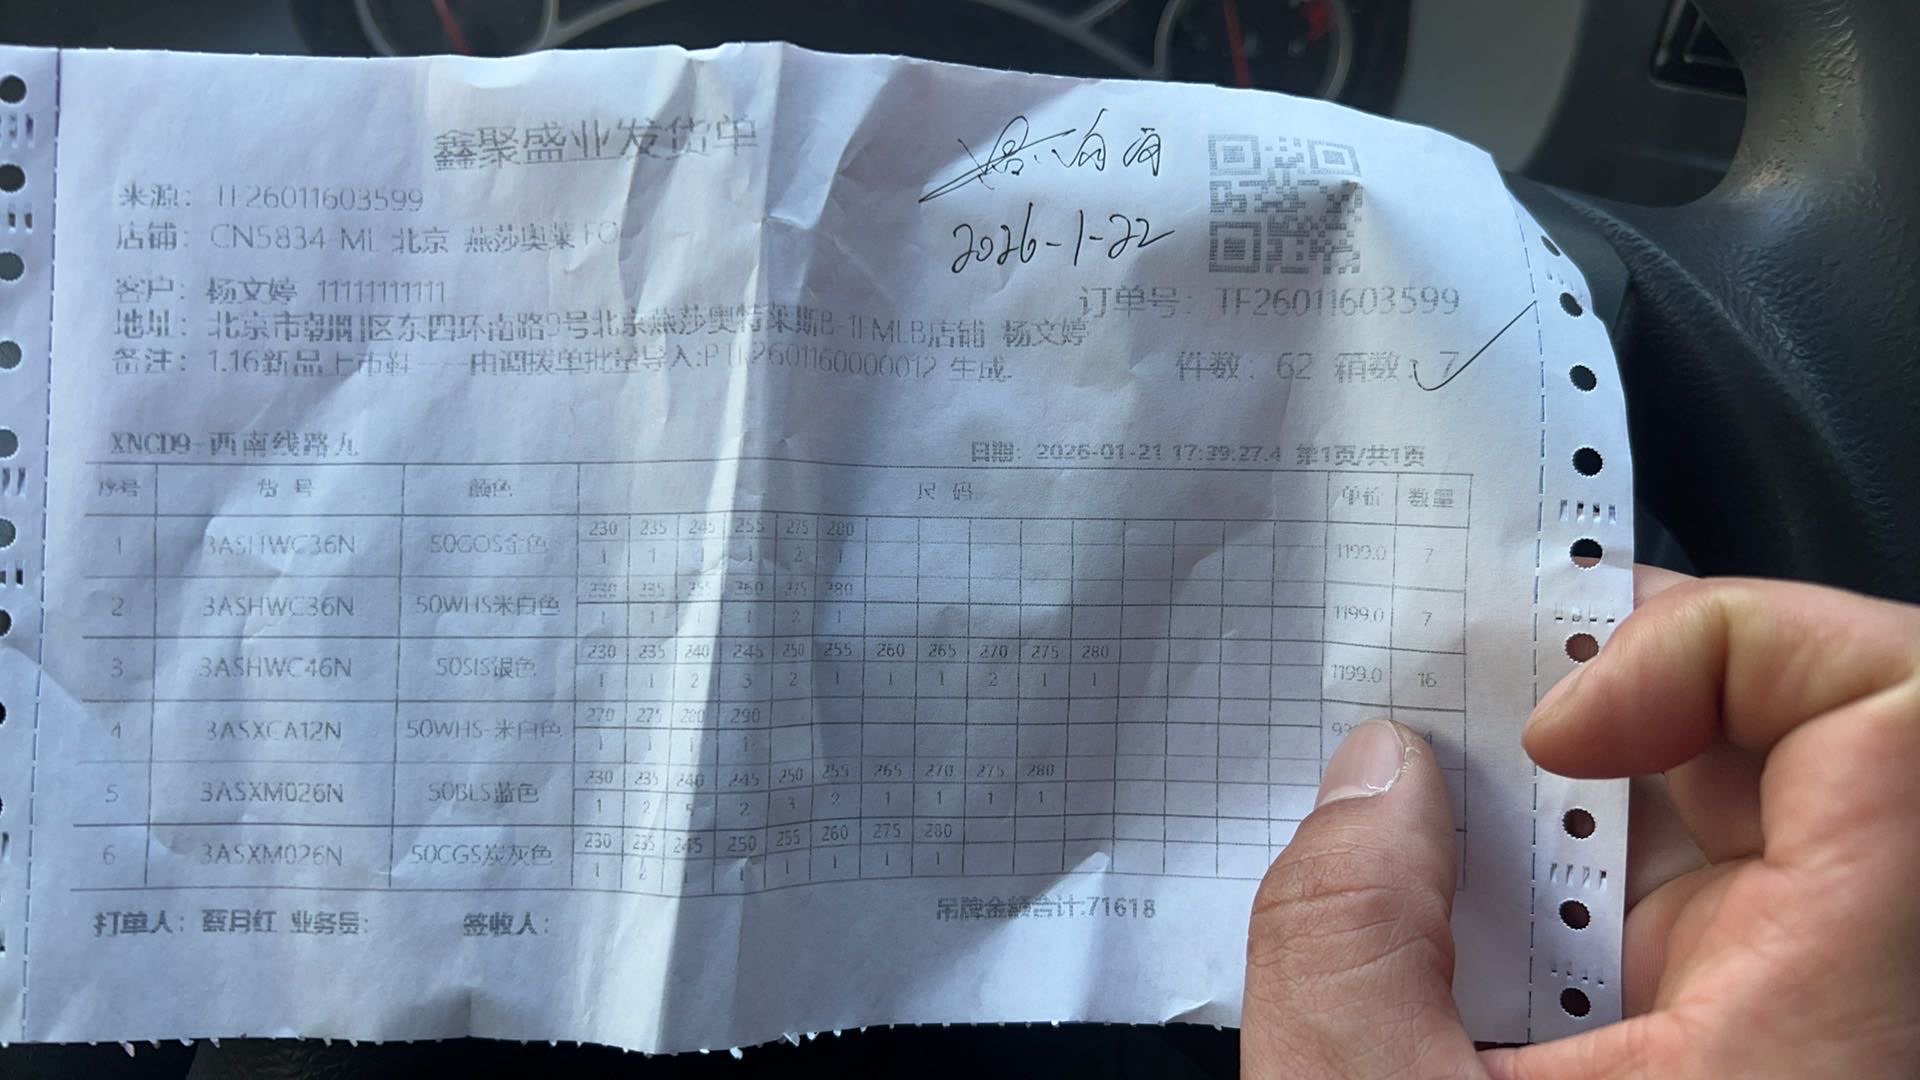 鑫聚盛业发货单
2026-1-22
来源：TF26011603599
店铺：CN5834 ML 北京 燕莎奥莱FO
客户：杨文婷 11111111111
订单号：TF26011603599
地址：北京市朝阳区东四环南路9号北京燕莎奥特莱斯B-1FMLB店铺 杨文婷
备注：1.16新品上市鞋——由调拨单批量导入:PTK2601160000012 生成.
件数：62 箱数：7
XNCD9-西南线路九
日期：2026-01-21 17:39:27.4 第1页/共1页
序号 货号 颜色 尺码 单价 数量
230 235 245 255 275 280
1 3ASHWC36N 50GOS金色 1199.0 7
1 1 1 1 2 1
230 235 255 260 275 280
2 3ASHWC36N 50WHS米白色 1199.0 7
1 1 1 1 2 1
230 235 240 245 250 255 260 265 270 275 280
3 3ASHWC46N 50SIS银色 1199.0 16
1 1 2 3 2 1 1 1 2 1 1
270 275 280 290
4 3ASXCA12N 50WHS-米白色 4
1 1 1 1
230 235 240 245 250 255 265 270 275 280
5 3ASXM026N 50BLS蓝色
1 2 5 2 3 2 1 1 1 1
230 235 245 250 255 260 275 280
6 3ASXM026N 50CGS炭灰色
1 2 1 1 1 1 1
吊牌金额合计:71618
打单人：蔡月红 业务员： 签收人：